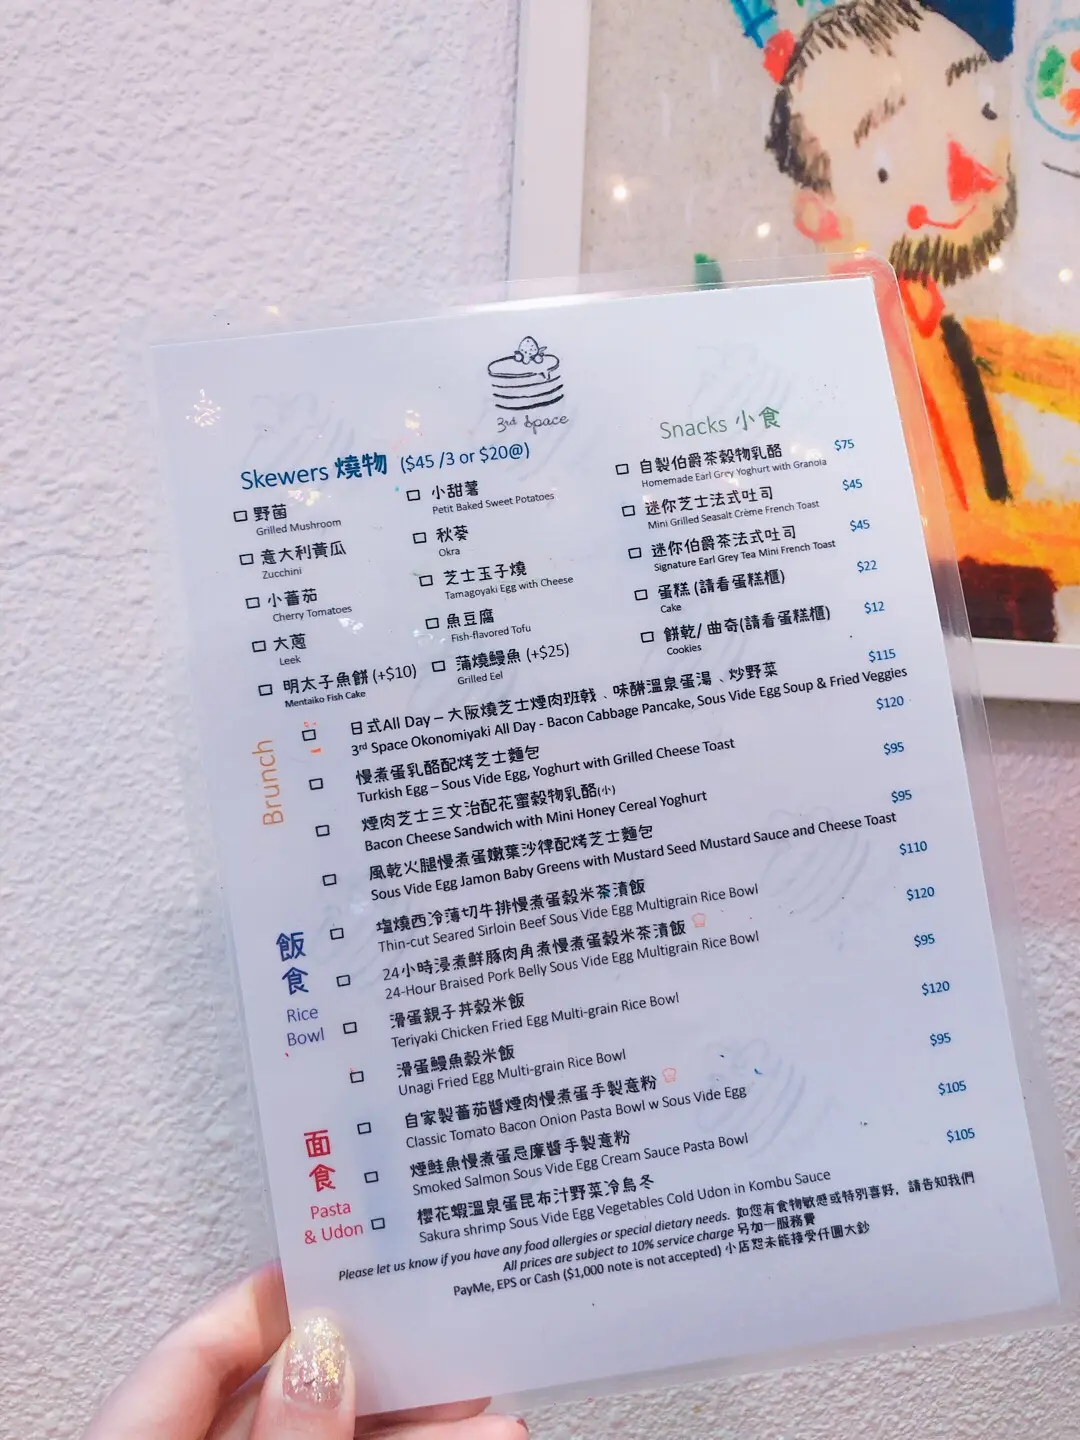 3rd Space
Skewers 燒物 ($45 /3 or $20@)
野菌
Grilled Mushroom
意大利黃瓜
Zucchini
小蕃茄
Cherry Tomatoes
大蔥
Leek
明太子魚餅 (+$10)
Mentaiko Fish Cake
小甜薯
Petit Baked Sweet Potatoes
秋葵
Okra
芝士玉子燒
Tamagoyaki Egg with Cheese
魚豆腐
Fish-flavored Tofu
蒲燒鰻魚 (+$25)
Grilled Eel
Snacks 小食
自製伯爵茶穀物乳酪 $75
Homemade Earl Grey Yoghurt with Granola
迷你芝士法式吐司 $45
Mini Grilled Seasalt Crème French Toast
迷你伯爵茶法式吐司 $45
Signature Earl Grey Tea Mini French Toast
蛋糕 (請看蛋糕櫃) $22
Cake
餅乾/ 曲奇(請看蛋糕櫃) $12
Cookies
Brunch
日式All Day – 大阪燒芝士煙肉班戟、味醂溫泉蛋湯、炒野菜 $115
3rd Space Okonomiyaki All Day - Bacon Cabbage Pancake, Sous Vide Egg Soup & Fried Veggies
慢煮蛋乳酪配烤芝士麵包 $120
Turkish Egg – Sous Vide Egg, Yoghurt with Grilled Cheese Toast
煙肉芝士三文治配花蜜穀物乳酪(小) $95
Bacon Cheese Sandwich with Mini Honey Cereal Yoghurt
風乾火腿慢煮蛋嫩葉沙律配烤芝士麵包 $95
Sous Vide Egg Jamon Baby Greens with Mustard Seed Mustard Sauce and Cheese Toast
飯食
Rice
Bowl
塩燒西冷薄切牛排慢煮蛋穀米茶漬飯 $110
Thin-cut Seared Sirloin Beef Sous Vide Egg Multigrain Rice Bowl
24小時浸煮鮮豚肉角煮慢煮蛋穀米茶漬飯 $120
24-Hour Braised Pork Belly Sous Vide Egg Multigrain Rice Bowl
滑蛋親子丼穀米飯 $95
Teriyaki Chicken Fried Egg Multi-grain Rice Bowl
滑蛋鰻魚穀米飯 $120
Unagi Fried Egg Multi-grain Rice Bowl
面食
Pasta
& Udon
自家製蕃茄醬煙肉慢煮蛋手製意粉 $95
Classic Tomato Bacon Onion Pasta Bowl w Sous Vide Egg
煙鮭魚慢煮蛋忌廉醬手製意粉 $105
Smoked Salmon Sous Vide Egg Cream Sauce Pasta Bowl
櫻花蝦溫泉蛋昆布汁野菜冷烏冬 $105
Sakura shrimp Sous Vide Egg Vegetables Cold Udon in Kombu Sauce
Please let us know if you have any food allergies or special dietary needs. 如您有食物敏感或特別喜好，請告知我們
All prices are subject to 10% service charge 另加一服務費
PayMe, EPS or Cash ($1,000 note is not accepted) 小店恕未能接受仟圓大鈔